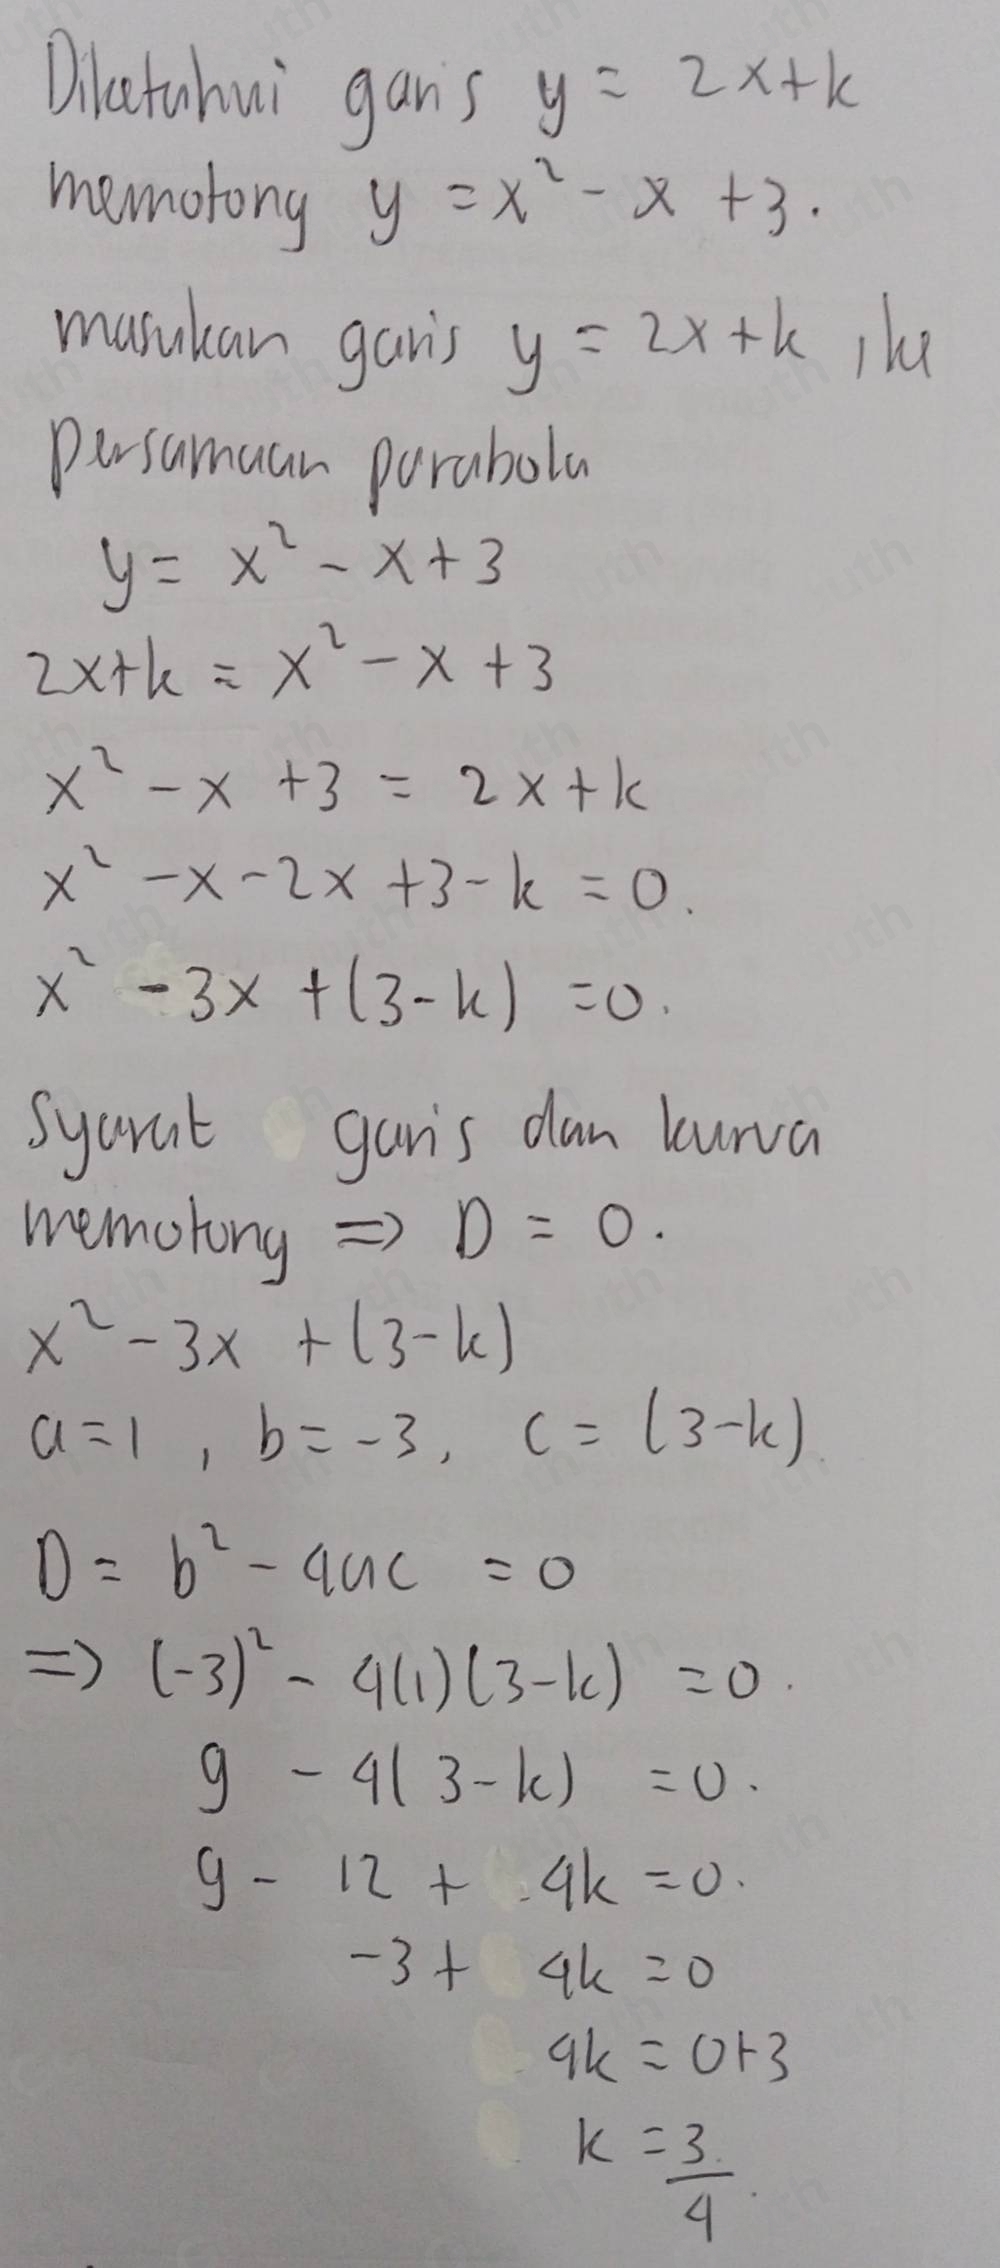 Diketahui garis y = 2x+k
memotong y = x² - x + 3.
masukan garis y = 2x+k, ke
persamaan parabola
y = x² - x + 3
2x+k = x² - x + 3
x² - x + 3 = 2x + k
x² - x - 2x + 3 - k = 0.
x² - 3x + (3-k) = 0.
Syarat garis dan kurva
memotong => D = 0.
x² - 3x + (3-k)
a=1, b=-3, c = (3-k)
D = b² - 4ac = 0
=> (-3)² - 4(1)(3-k) = 0.
9 - 4(3-k) = 0.
9 - 12 + 4k = 0.
-3 + 4k = 0
4k = 0+3
k = 3/4.